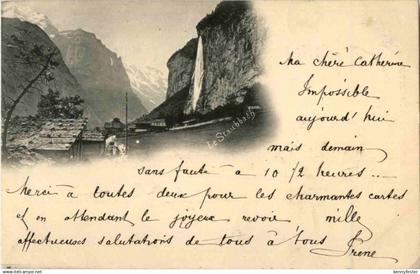 Le Staubbach
Ma chère Catherine
Impossible
aujourd'hui
mais demain
sans faute à 10 1/2 heures...
Merci à toutes deux pour les charmantes cartes
et en attendant le joyeux revoir mille
affectueuses salutations de tous à tous
Irene
kennyfester